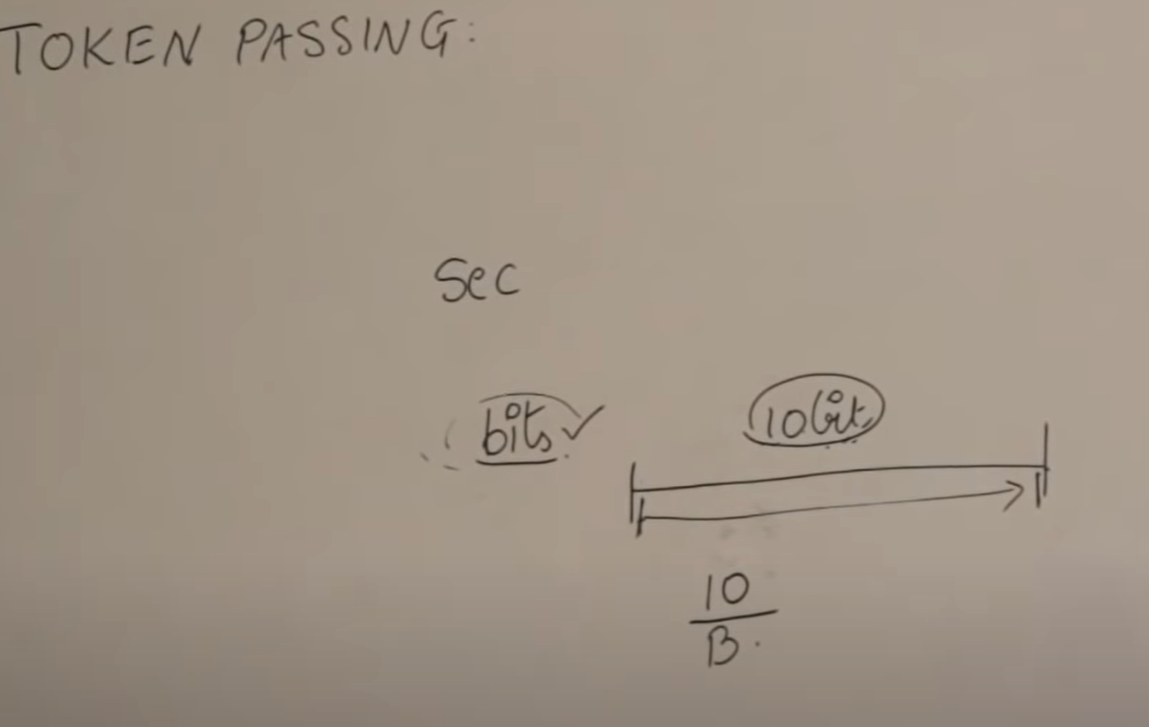 TOKEN PASSING:
Sec
bits
10bit
10
B.